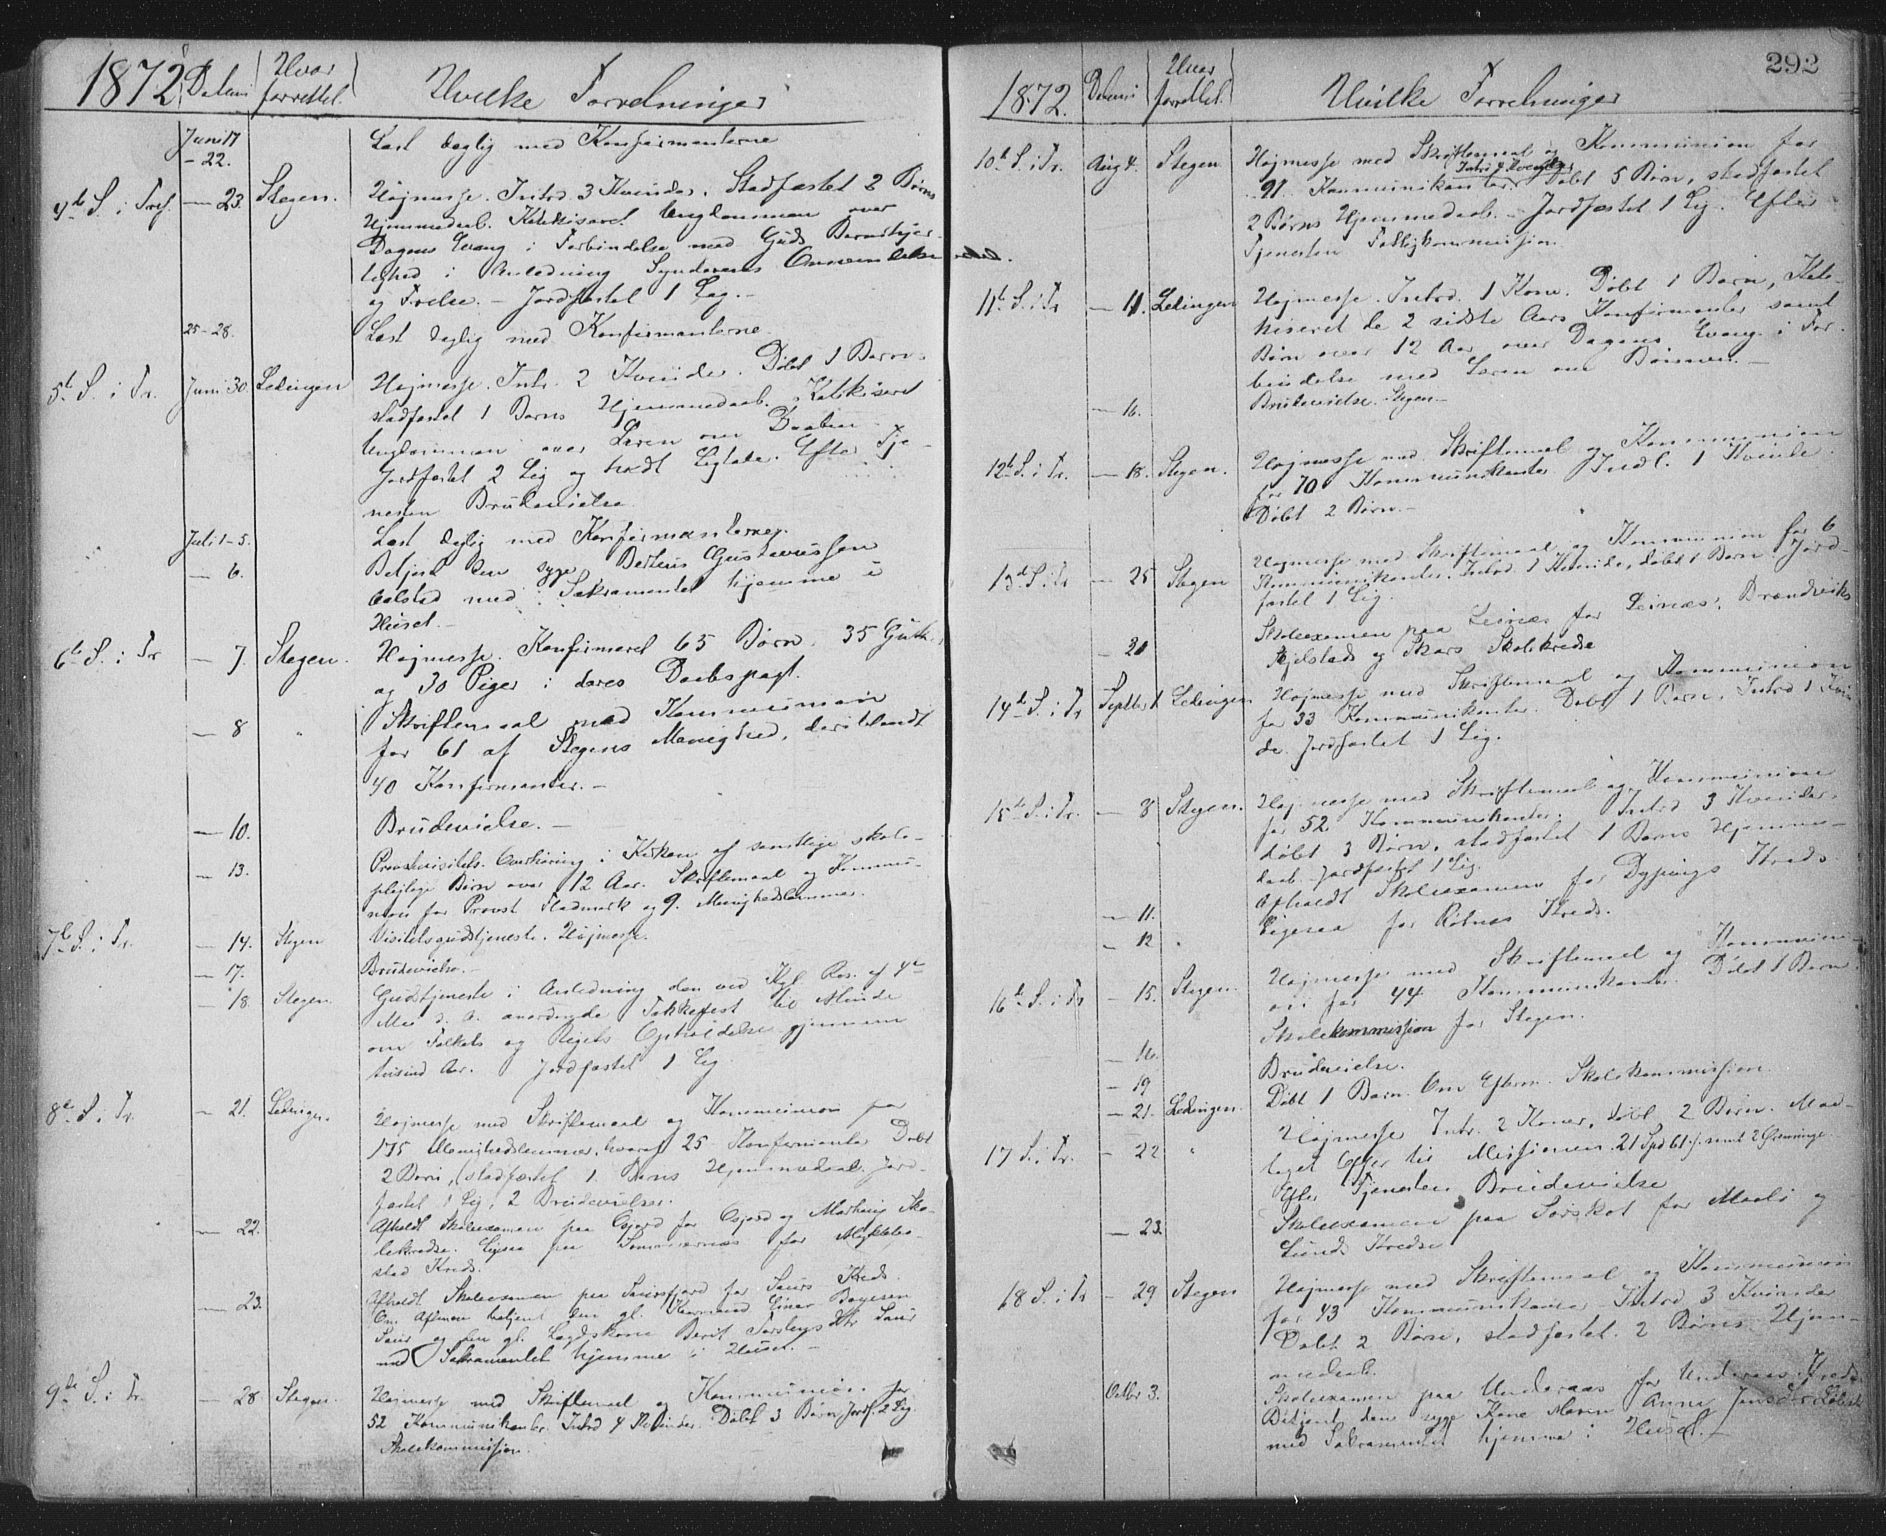 1872 Datum Hvor forrettet. Hvilke Forretninger
Juni 17
- 22. Læst daglig med Konfirmanterne
4de S. i Tref. - 23. Stegen. Højmesse. Introd. 3 Kvinder. Stadfæstet 2 Børns
Hjemmedaab. Katekiseret Ungdommen over
Dagens Evang. i Forbindelse med Guds Barmhjer-
tighed i Anledning Synderens Omvendelse
og Frelse. - Jordfæstet 1 Lig. -
25-28. Læst daglig med Konfirmanterne.
5te S. i Tr. Juni 30. Lødingen Højmesse. Intr. 2 Kvinder. Døbt 1 Barn,
stadfæstet 1 Barns Hjemmedaab. Katekiseret
Ungdommen over Læren om Daaben.
Jordfæstet 2 Lig og holdt Ligtale. Efter Tje-
nesten Brudevielse.
Juli 1-5. Læst daglig med Konfirmanterne.
- 6. Betjent den syge Berteus Gustavussen
med Sakramentet hjemme i
Huset. -
6te S. i Tr - 7. Stegen. Højmesse. Konfirmeret 65 Børn. 35 Gutt.
og 30 Piger i deres Daabspagt.
- 8 " Skriftemaal med Kommunion
for 61 af Stegens Menighed, deriblandt
40 Konfirmanter. -
- 10. Brudevielse. -
- 13. Provstevisitats. Overhøring i Kirken af samtlige skole-
plejtige Børn over 12 Aar. Skriftemaal og Kommu-
nion for Provst Fladmark og 9 Menighedslemmer.
7de S. i Tr. - 14. Stegen Visitatsgudstjeneste. Højmesse.
- 17. Brudevielse. -
- 18. Stegen. Gudstjeneste i Anledning den ved Kgl. Res. af 4de
Mai d. A. anordnede Takkefest til Minde
om Folkets og Rigets Opholdelse gjennem
tusind Aar. Jordfæstet 1 Lig.
8de S. i Tr. - 21. Lødingen. Højmesse med Skriftemaal og Kommunion for
175 Menighedslemmer, hvoraf 25 Konfirmanter. Døbt
2 Børn, stadfæstet 1 Barns Hjemmedaab. Jord-
fæstet 1 Lig, 2 Brudevielser.
- 22. Afholdt Skoleexamen paa for og Sko-
lekredse. Ligesaa paa for
stad Kreds.
- 23. Afholdt Skoleexamen paa for Kreds.
Om Aftenen betjent den gl. Einar
og den gl. Lægdskone Berit
med Sakramentet hjemme i Huset. -
9de S. i Tr. - 28 Stegen. Højmesse med Skriftemaal og Kommunion for
52 Kommunikanter. Introd 4 Kvinder. Døbt 3 Børn. Jordf. 2 Lig.
Skolekommission.
292
1872. Datum Hvor forrettet. Hvilke Forretninger
10de S. i Tr. Aug 4. Stegen Højmesse med Skriftemaal og Kommunion for
Intr. 4 Kvinder
91 Kommunikanter. Døbt 5 Børn, stadfæstet
2 Børns Hjemmedaab. - Jordfæstet 1 Lig. Efter
Tjenesten Fattigkommission.
11te S. i Tr - 11. Lødingen Højmesse. Introd. 1 Kone. Døbt 1 Barn, Kate-
kiseret de 2 sidste Aars Konfirmanter samt
Børn over 12 Aar over Dagens Evang. i For-
bindelse med Læren om Bønnen. -
- 16. Brudevielse. Stegen -
12te S. i Tr. - 18. Stegen. Højmesse med Skriftemaal og Kommunion
for 70 Kommunikanter. Indl. 1 Kvinde.
Døbt 2 Børn. -
13de S. i Tr - 25 Stegen Højmesse med Skriftemaal og Kommunion for 6
Kommunikanter. Introd. 1 Kvinde, døbt 1 Barn. Jord-
fæstet 1 Lig.
Skoleexamen paa Leines for Leines, Brændviks
Kjelstads og Skars Skolekredse
14de S. i Tr Septbr 1 Lødingen Højmesse med Skriftemaal og Kommunion
for 33 Kommunikanter. Døbt 1 Barn, Introd 1 Kvin-
de. Jordfæstet 1 Lig.
15de S. i Tr. - 8 Stegen. Højmesse med Skriftemaal og Kommunion
for 52 Kommunikanter. Introd 3 Kvinder.
døbt 3 Børn, stadfæstet 1 Barns Hjemme-
daab. Jordfæstet 1 Lig.
- 11. Afholdt Skoleexamen for Dypings Kreds
- 12 " Ligesaa for Røtnes Kreds.
16de S. i Tr - 15. Stegen Højmesse med Skriftemaal og Kommuni-
on for 44 Kommunikanter. Døbt 1 Barn.
- 16. Skolekommission for Stegen.
- 19 Brudevielse.
- 21. Lødingen. Døbt 1 Barn. Om Efterm. Skolekommission.
17 S. i Tr. - 22 " Højmesse Intr. 2 Koner, døbt 2 Børn. Mod-
taget Offer til Missionen 21 Spd
Efter Tjenesten Brudevielse
- 23. Skoleexamen paa for og
Lunds Kredse
18 S. i Tr - 29 Stegen Højmesse med Skriftemaal og Kommunion
for 43 Kommunikanter Introd 3 Kvinder
Døbt 2 Børn, stadfæstet 2 Børns Hjem-
medaab.
Octbr 3. Skoleexamen paa for Kreds.
Betjent den syge Kone Maren Anna
med Sakramentet hjemme i Huset. -